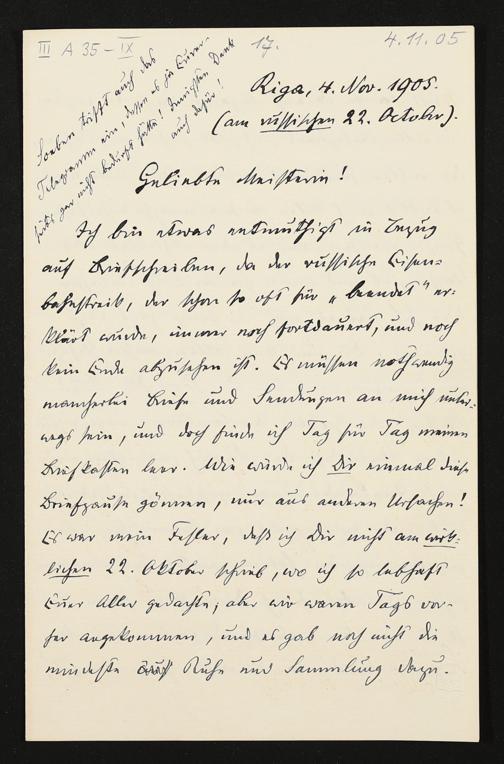 III A 35 - IX
17.
4.11.05
Soeben trifft auch das
Telegramm ein, dessen es ja Eurer-
seits gar nicht bedurft hätte! Innigsten Dank
auch dafür!
Riga, 4. Nov. 1905.
(am russischen 22. October).
Geliebte Meisterin!
Ich bin etwas entmuthigt in Bezug
auf Briefschreiben, da der russische Eisen-
bahnstreik, der schon so oft für „beendet" er-
klärt wurde, immer noch fortdauert, und noch
kein Ende abzusehen ist. Es müssen nothwendig
mancherlei Briefe und Sendungen an mich unter-
wegs sein, und doch finde ich Tag für Tag meinen
Briefkasten leer. Wie würde ich Dir einmal diese
Briefpause gönnen, nur aus anderen Ursachen!
Es war mein Fehler, daß ich Dir nicht am wirk-
lichen 22. Oktober schrieb, wo ich so lebhaft
Euer Aller gedachte; aber wir waren Tags vor-
her angekommen, und es gab noch nicht die
mindeste Ruhe und Sammlung dazu.